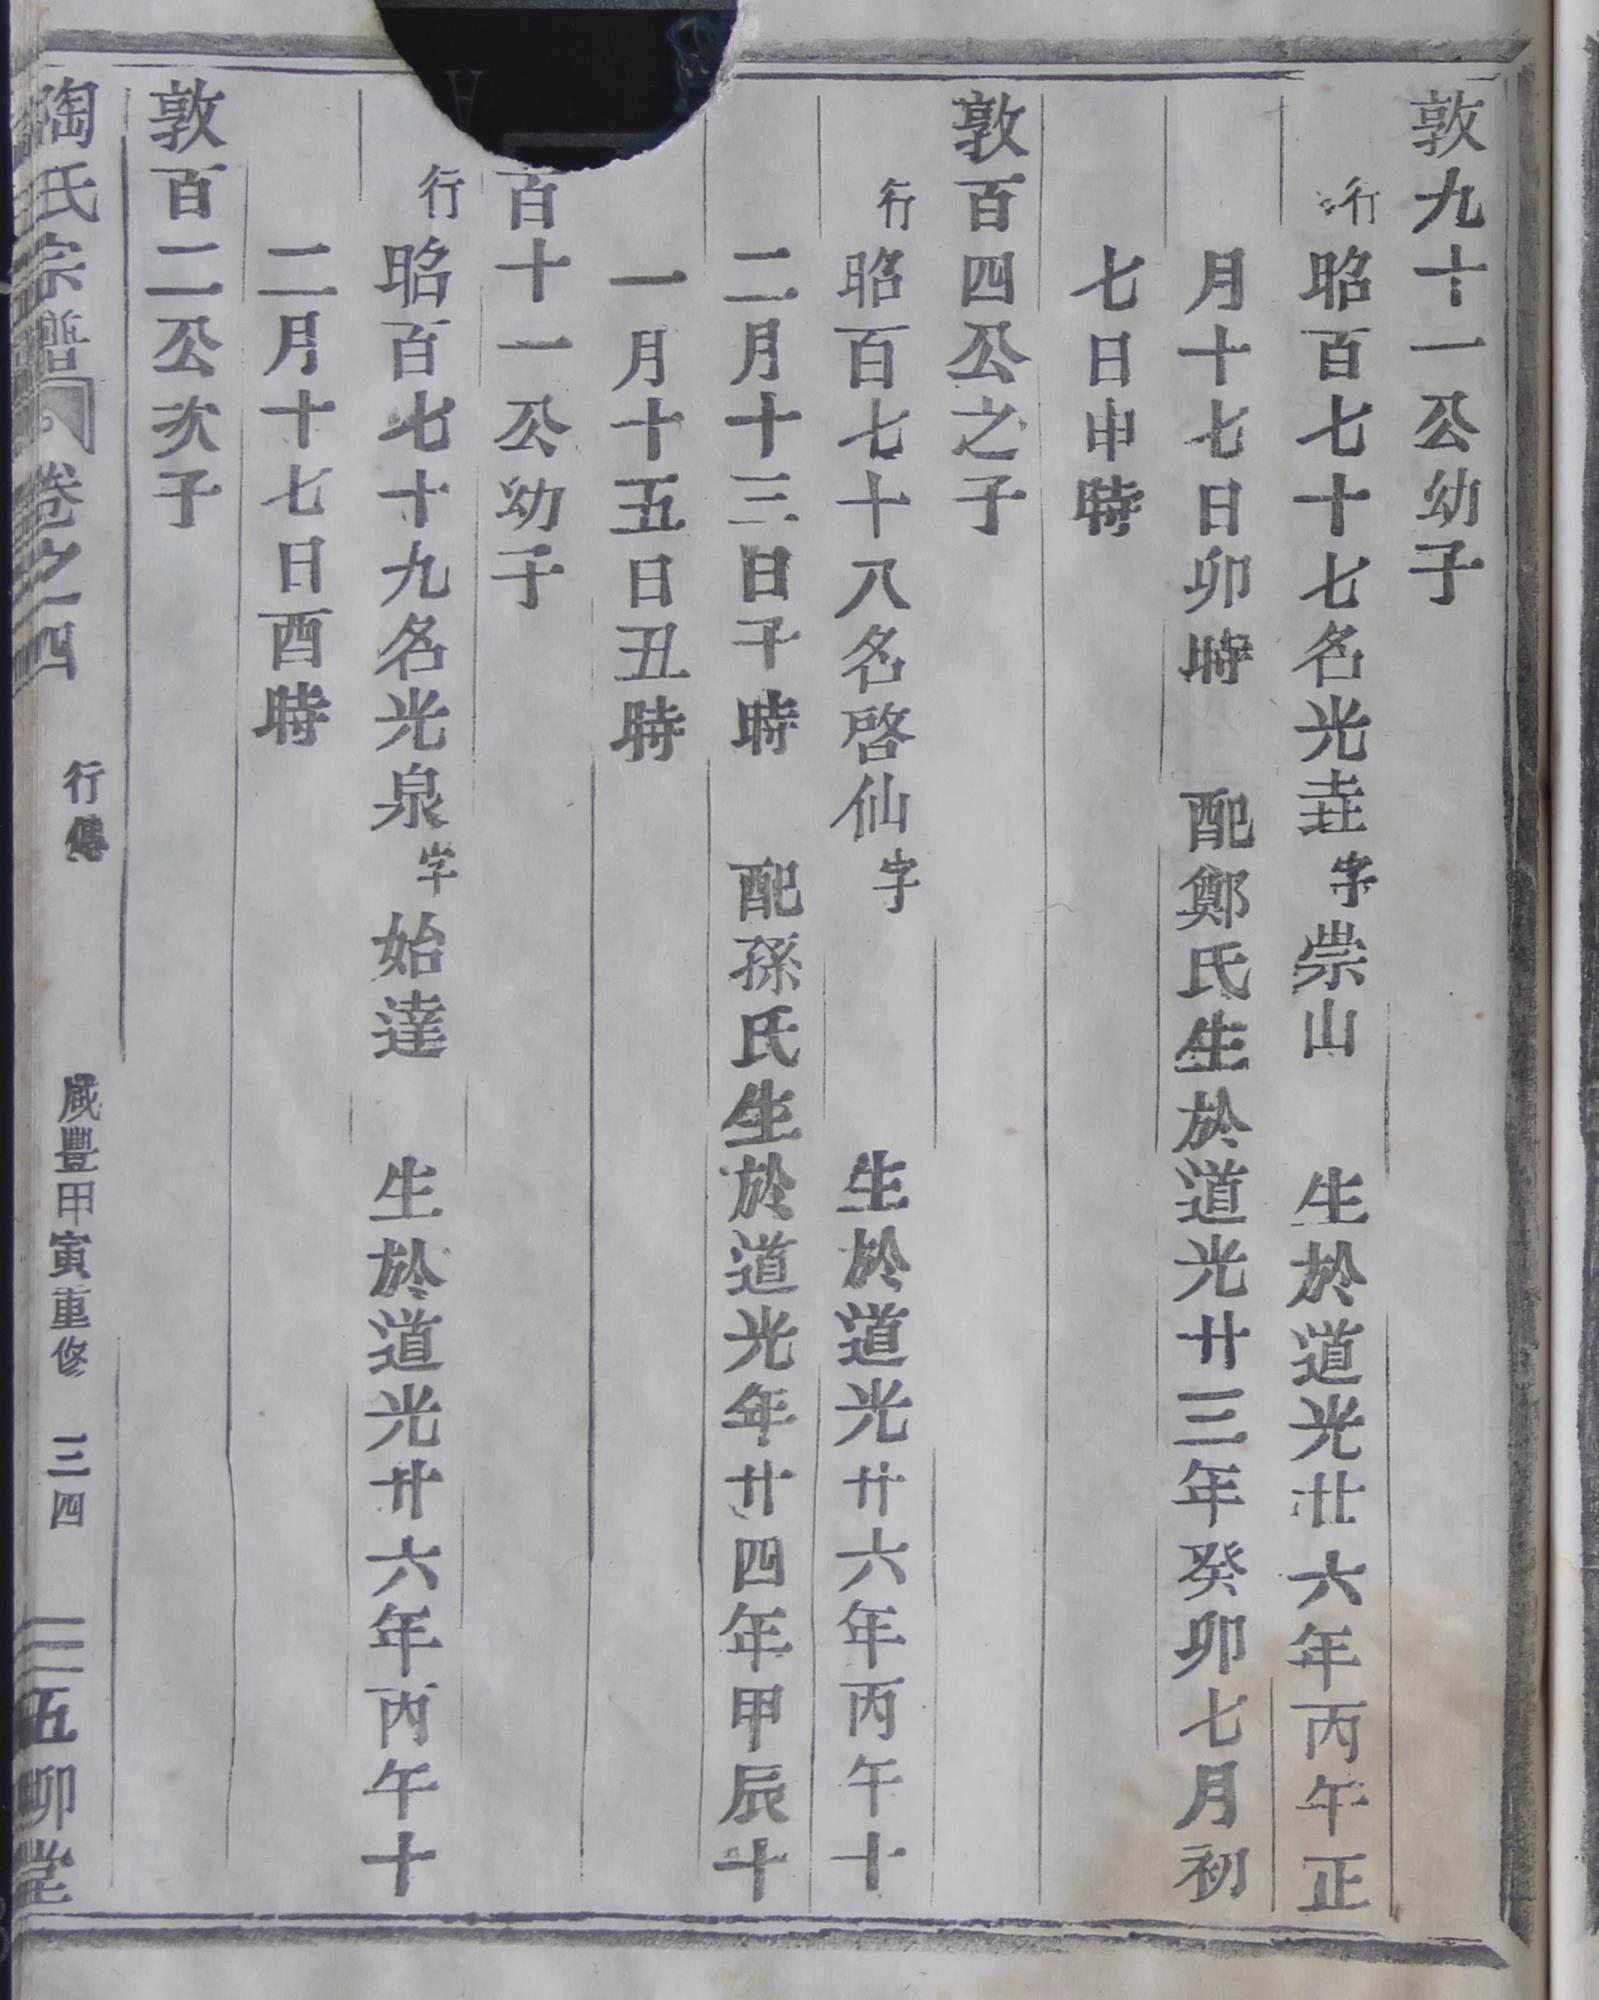 敦九十一公幼子
行昭百七十七名光壵字崇山　生於道光廿六年丙午正
月十七日卯時　配鄭氏生於道光廿三年癸卯七月初
七日申時
敦百四公之子
行昭百七十八名啓仙字　生於道光廿六年丙午十
二月十三日子時　配孫氏生於道光年廿四年甲辰十
一月十五日丑時
百十一公幼子
行昭百七十九名光泉字始達　生於道光廿六年丙午十
二月十七日酉時
敦百二公次子
陶氏宗譜　卷之四　行傳　咸豐甲寅重修　三四　五柳堂